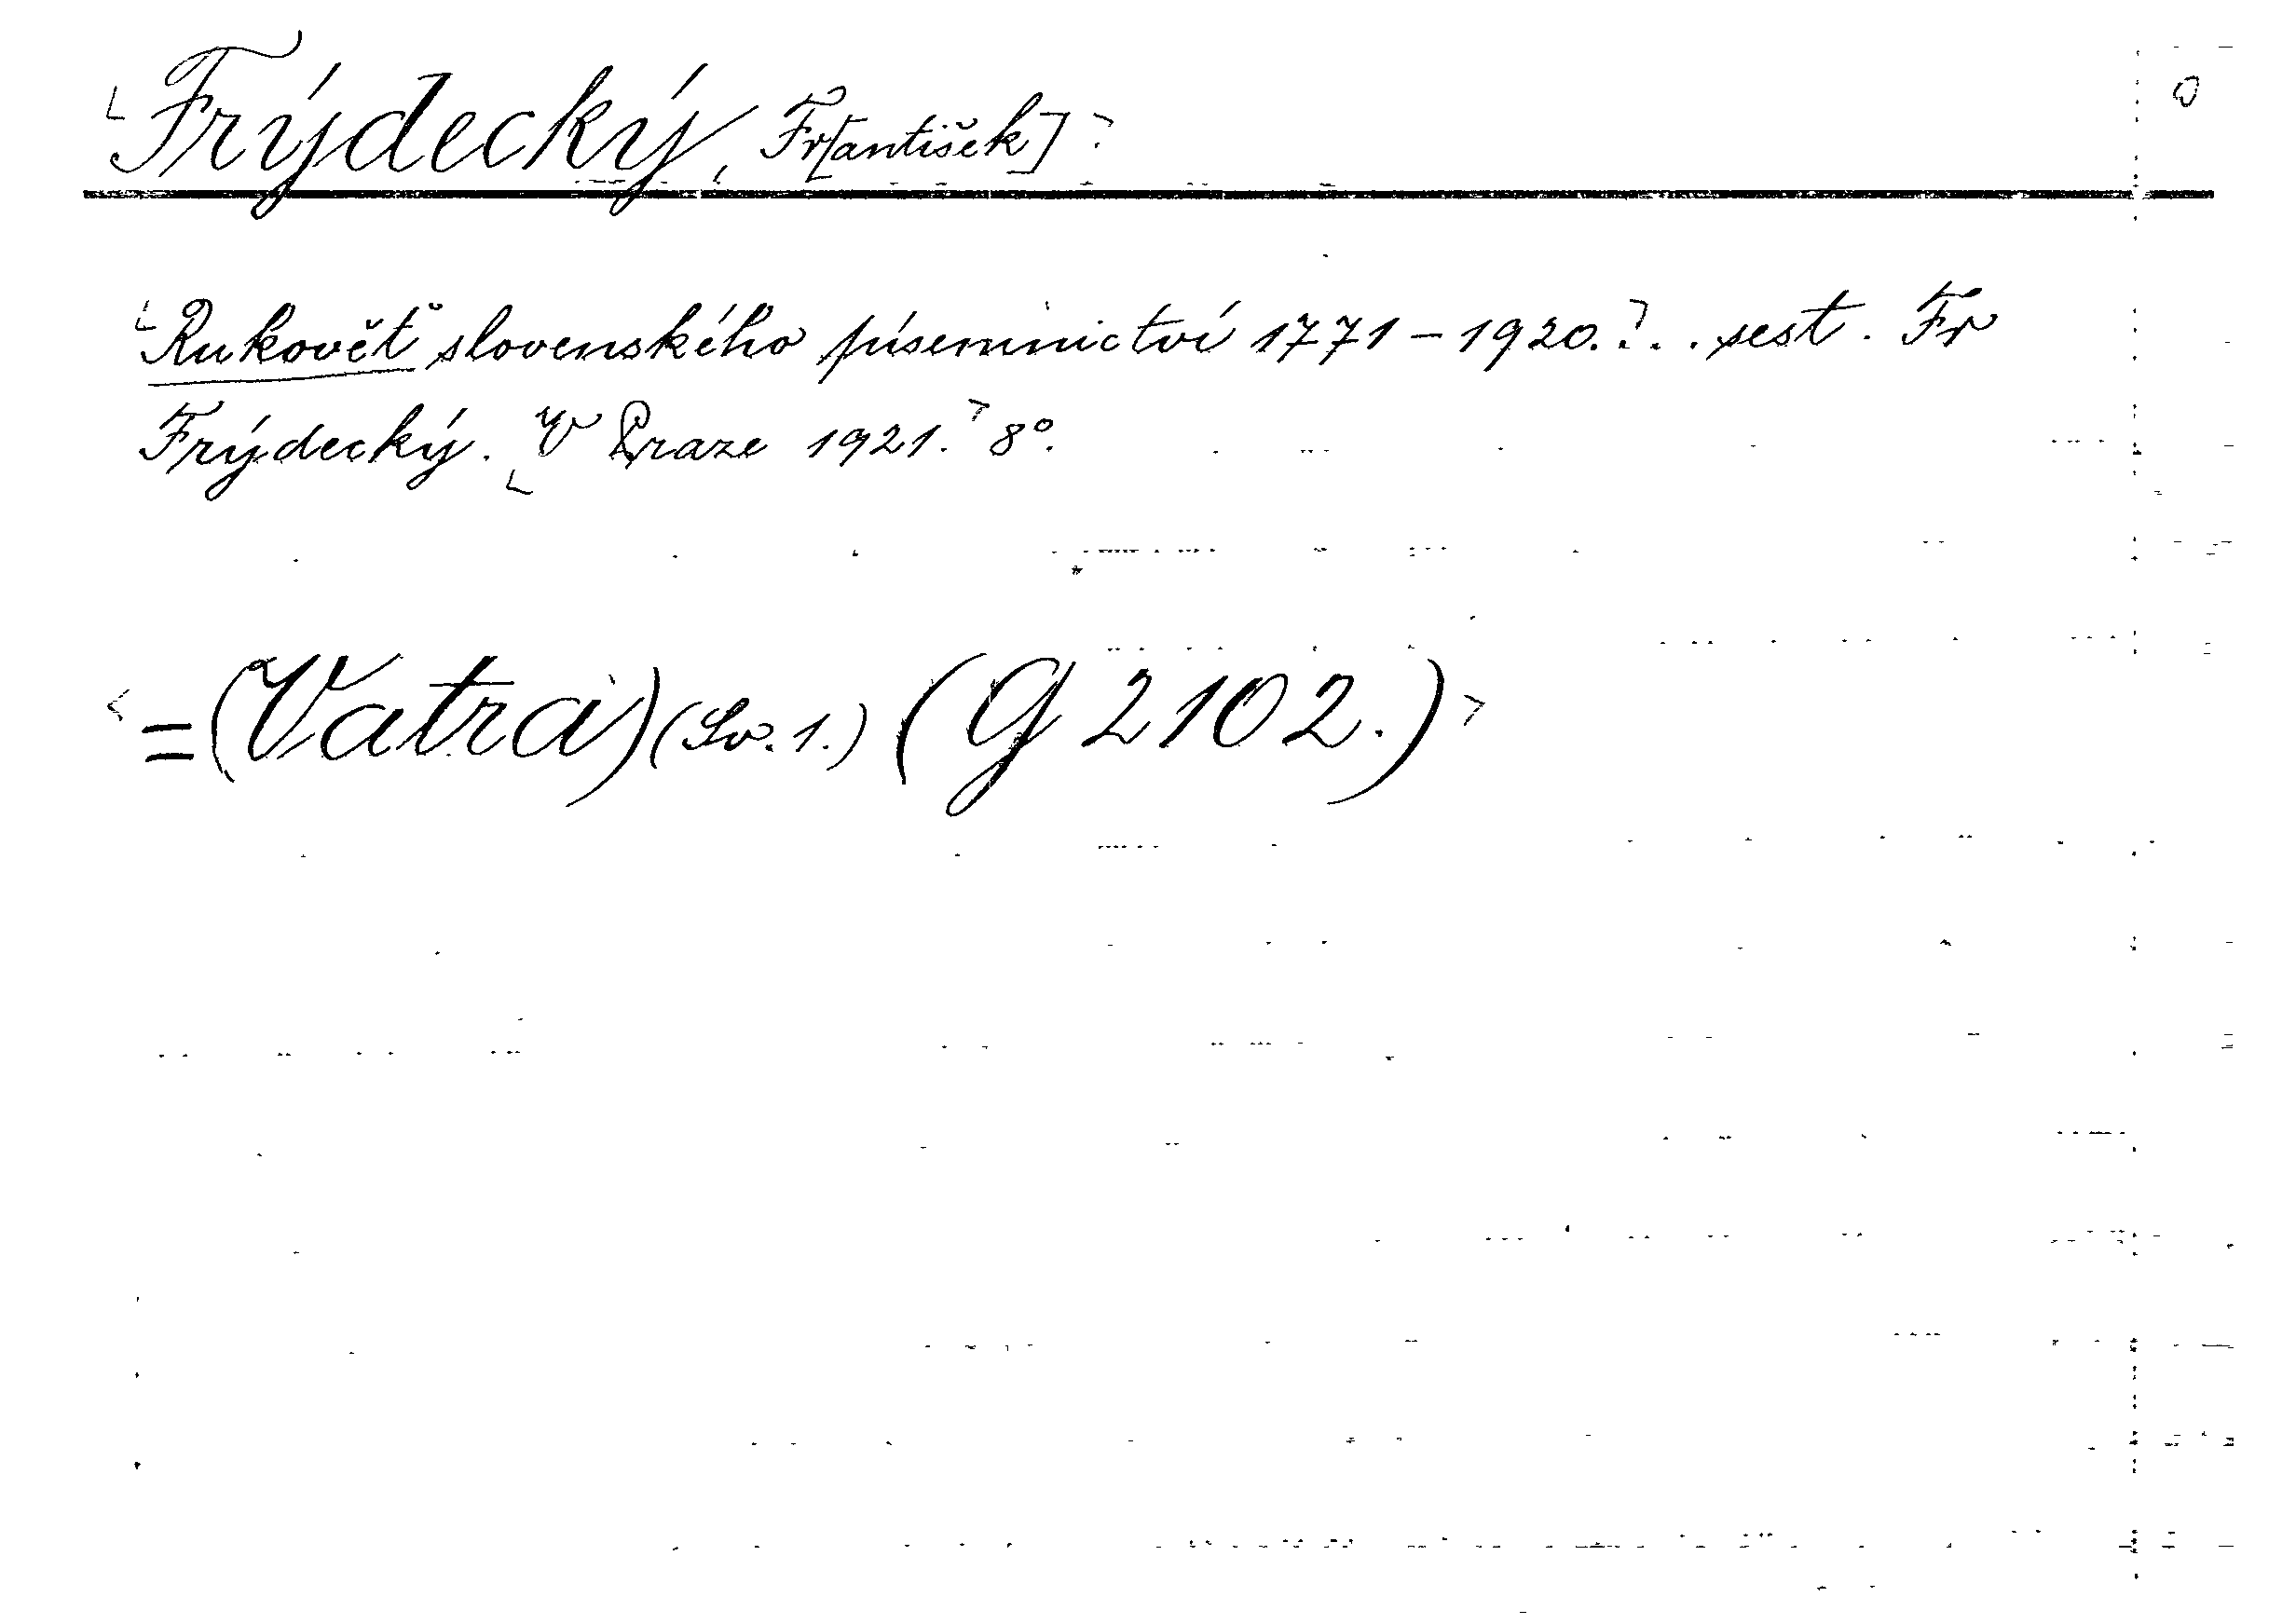 Frýdecký, Fr[antišek]
Rukověť slovenského písemnictví 1771-1920. . . sest. Fr
Frýdecký. V Praze 1921. 8°.
=(Vatra) (Sv. 1.) (G 2102.)